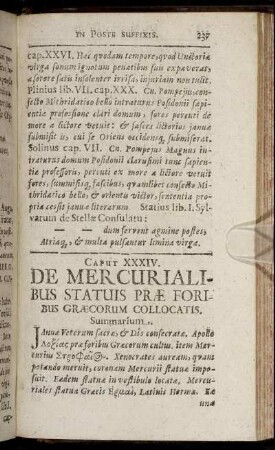 IN POSTE SUFFIXIS. 237
cap. XXVI. Hæc quodam tempore, quod Unctoria
virga sonum ignotum penatibus suis expaverat,
a sorore satis insolenter irrisa, injuriam non tulit.
Plinius lib. VII. cap. XXX. Cn. Pompejus, con-
fecto Mithridatico bello intraturus Posidonii sapi-
entiæ professione clari domum, fores percuti de
more a lictore vetuit: & fasces lictorios januæ
submisit is, cui se Oriens occidensq; submiserat.
Solinus cap. VII. Cn. Pompejus Magnus in-
traturus domum Posidonii clarissimi tunc sapien-
tiæ professoris, percuti ex more a lictore vetuit
fores, summissisq; fascibus, quamlibet confecto Mi-
thridatico bello, & orientis victor, sententia pro-
pria cessit januæ literarum. Statius lib. I. Syl-
varum de Stellæ Consulatu:
— — dum fervent agmine postes,
Atriaq;, & multa pulsantur limina virga.
CAPUT XXXIV.
DE MERCURIALI-
BUS STATUIS PRÆ FORI-
BUS GRÆCORUM COLLOCATIS.
Summarium.
JAnuæ Veterum sacræ, & Dis consecratæ. Apollo
Λοξίας præ foribus Græcorum cultus. item Mer-
curius Στροφαῖος. Xenocrates auream, quam
potando meruit, coronam Mercurii statuæ impo-
suit. Eædem statuæ in vestibulo locatæ, Mercu-
riales statuæ Græcis Ερμαῖ, Latinis Hermæ. Ea
unæ